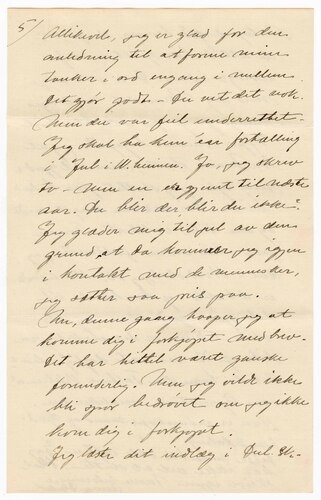 5/
Allikevel, jeg er glad for den
anledning til at forme mine
tanker i ord engang i mellem.
Det gjør godt. Du vet det nok.
Men du var feil underrettet.
Jeg skal ha kun én fortælling
i Jul i W. heimen. Jo, jeg skrev
to - men en er gjemt til næste
aar. Du blir der blir du ikke?
Jeg glæder mig til jul av den
grund, at da kommer jeg igjen
i kontakt med de mennesker,
jeg sætter saa pris paa.
Nu, denne gang haaper jeg at
komme dig i forkjøpet med brev.
Det har hittil været ganske
forunderlig. Men jeg vilde ikke
bli spor bedrøvet om jeg ikke
kom dig i forkjøpet.
Jeg læste dit indlæg i Dul.